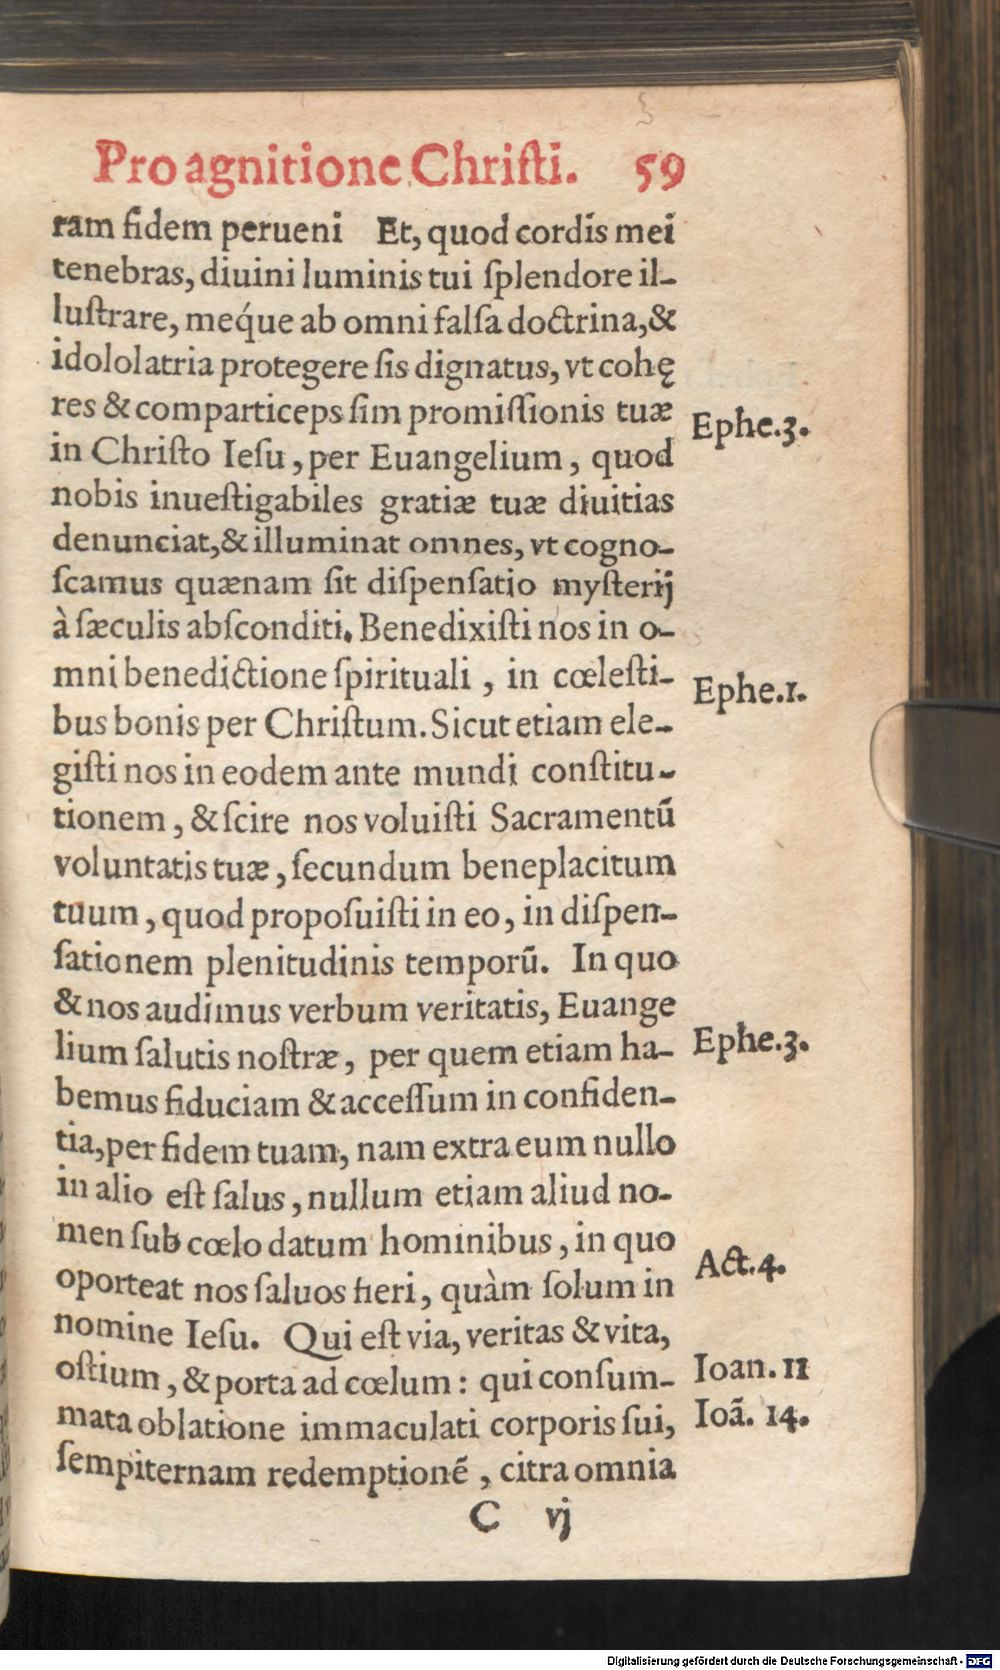 Pro agnitione Christi. 59
ram fidem perueni Et, quod cordis mei
tenebras, diuini luminis tui ſplendore il-
luſtrare, meq́ue ab omni falſa doctrina, &
idololatria protegere ſis dignatus, vt cohę
res & comparticeps ſim promiſſionis tuæ
Ephe.3.
in Chriſto Ieſu, per Euangelium, quod
nobis inueſtigabiles gratiæ tuæ diuitias
denunciat, & illuminat omnes, vt cogno-
ſcamus quænam ſit diſpenſatio myſterij
à ſæculis abſconditi. Benedixiſti nos in o-
mni benedictione ſpirituali, in cœleſti-
Ephe.1.
bus bonis per Chriſtum. Sicut etiam ele-
giſti nos in eodem ante mundi conſtitu-
tionem, & ſcire nos voluiſti Sacramentũ
voluntatis tuæ, ſecundum beneplacitum
tuum, quod propoſuiſti in eo, in diſpen-
ſationem plenitudinis temporũ. In quo
& nos audimus verbum veritatis, Euange
lium ſalutis noſtræ, per quem etiam ha-
Ephe.3.
bemus fiduciam & acceſſum in confiden-
tia, per fidem tuam, nam extra eum nullo
in alio eſt ſalus, nullum etiam aliud no-
men ſub cœlo datum hominibus, in quo
Act.4.
oporteat nos ſaluos fieri, quàm ſolum in
nomine Ieſu. Qui eſt via, veritas & vita,
oſtium, & porta ad cœlum: qui conſum-
Ioan. 11
mata oblatione immaculati corporis ſui,
Ioã. 14.
ſempiternam redemptionẽ, citra omnia
C vj
Digitalisierung gefördert durch die Deutsche Forschungsgemeinschaft - DFG